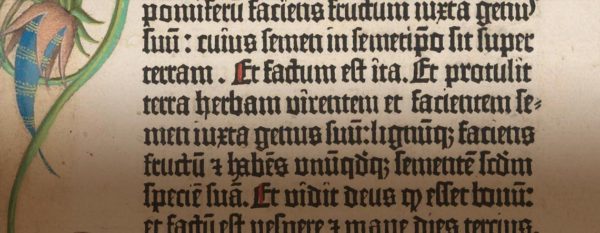 pomiferū faciens fructum iuxta genꝰ
suū : cuius semen in semetip̄o sit super
terram . Et factum est ita. Et protulit
terra herbam virentem et facientem se-
men iuxta genus suū: lignūqꝫ faciens
fructū ⁊ habēs unūqdqꝫ sementē scdm
speciē suā. Et vidit deus ꝙ esset bonū:
et factū est vespere ⁊ mane dies tercius.